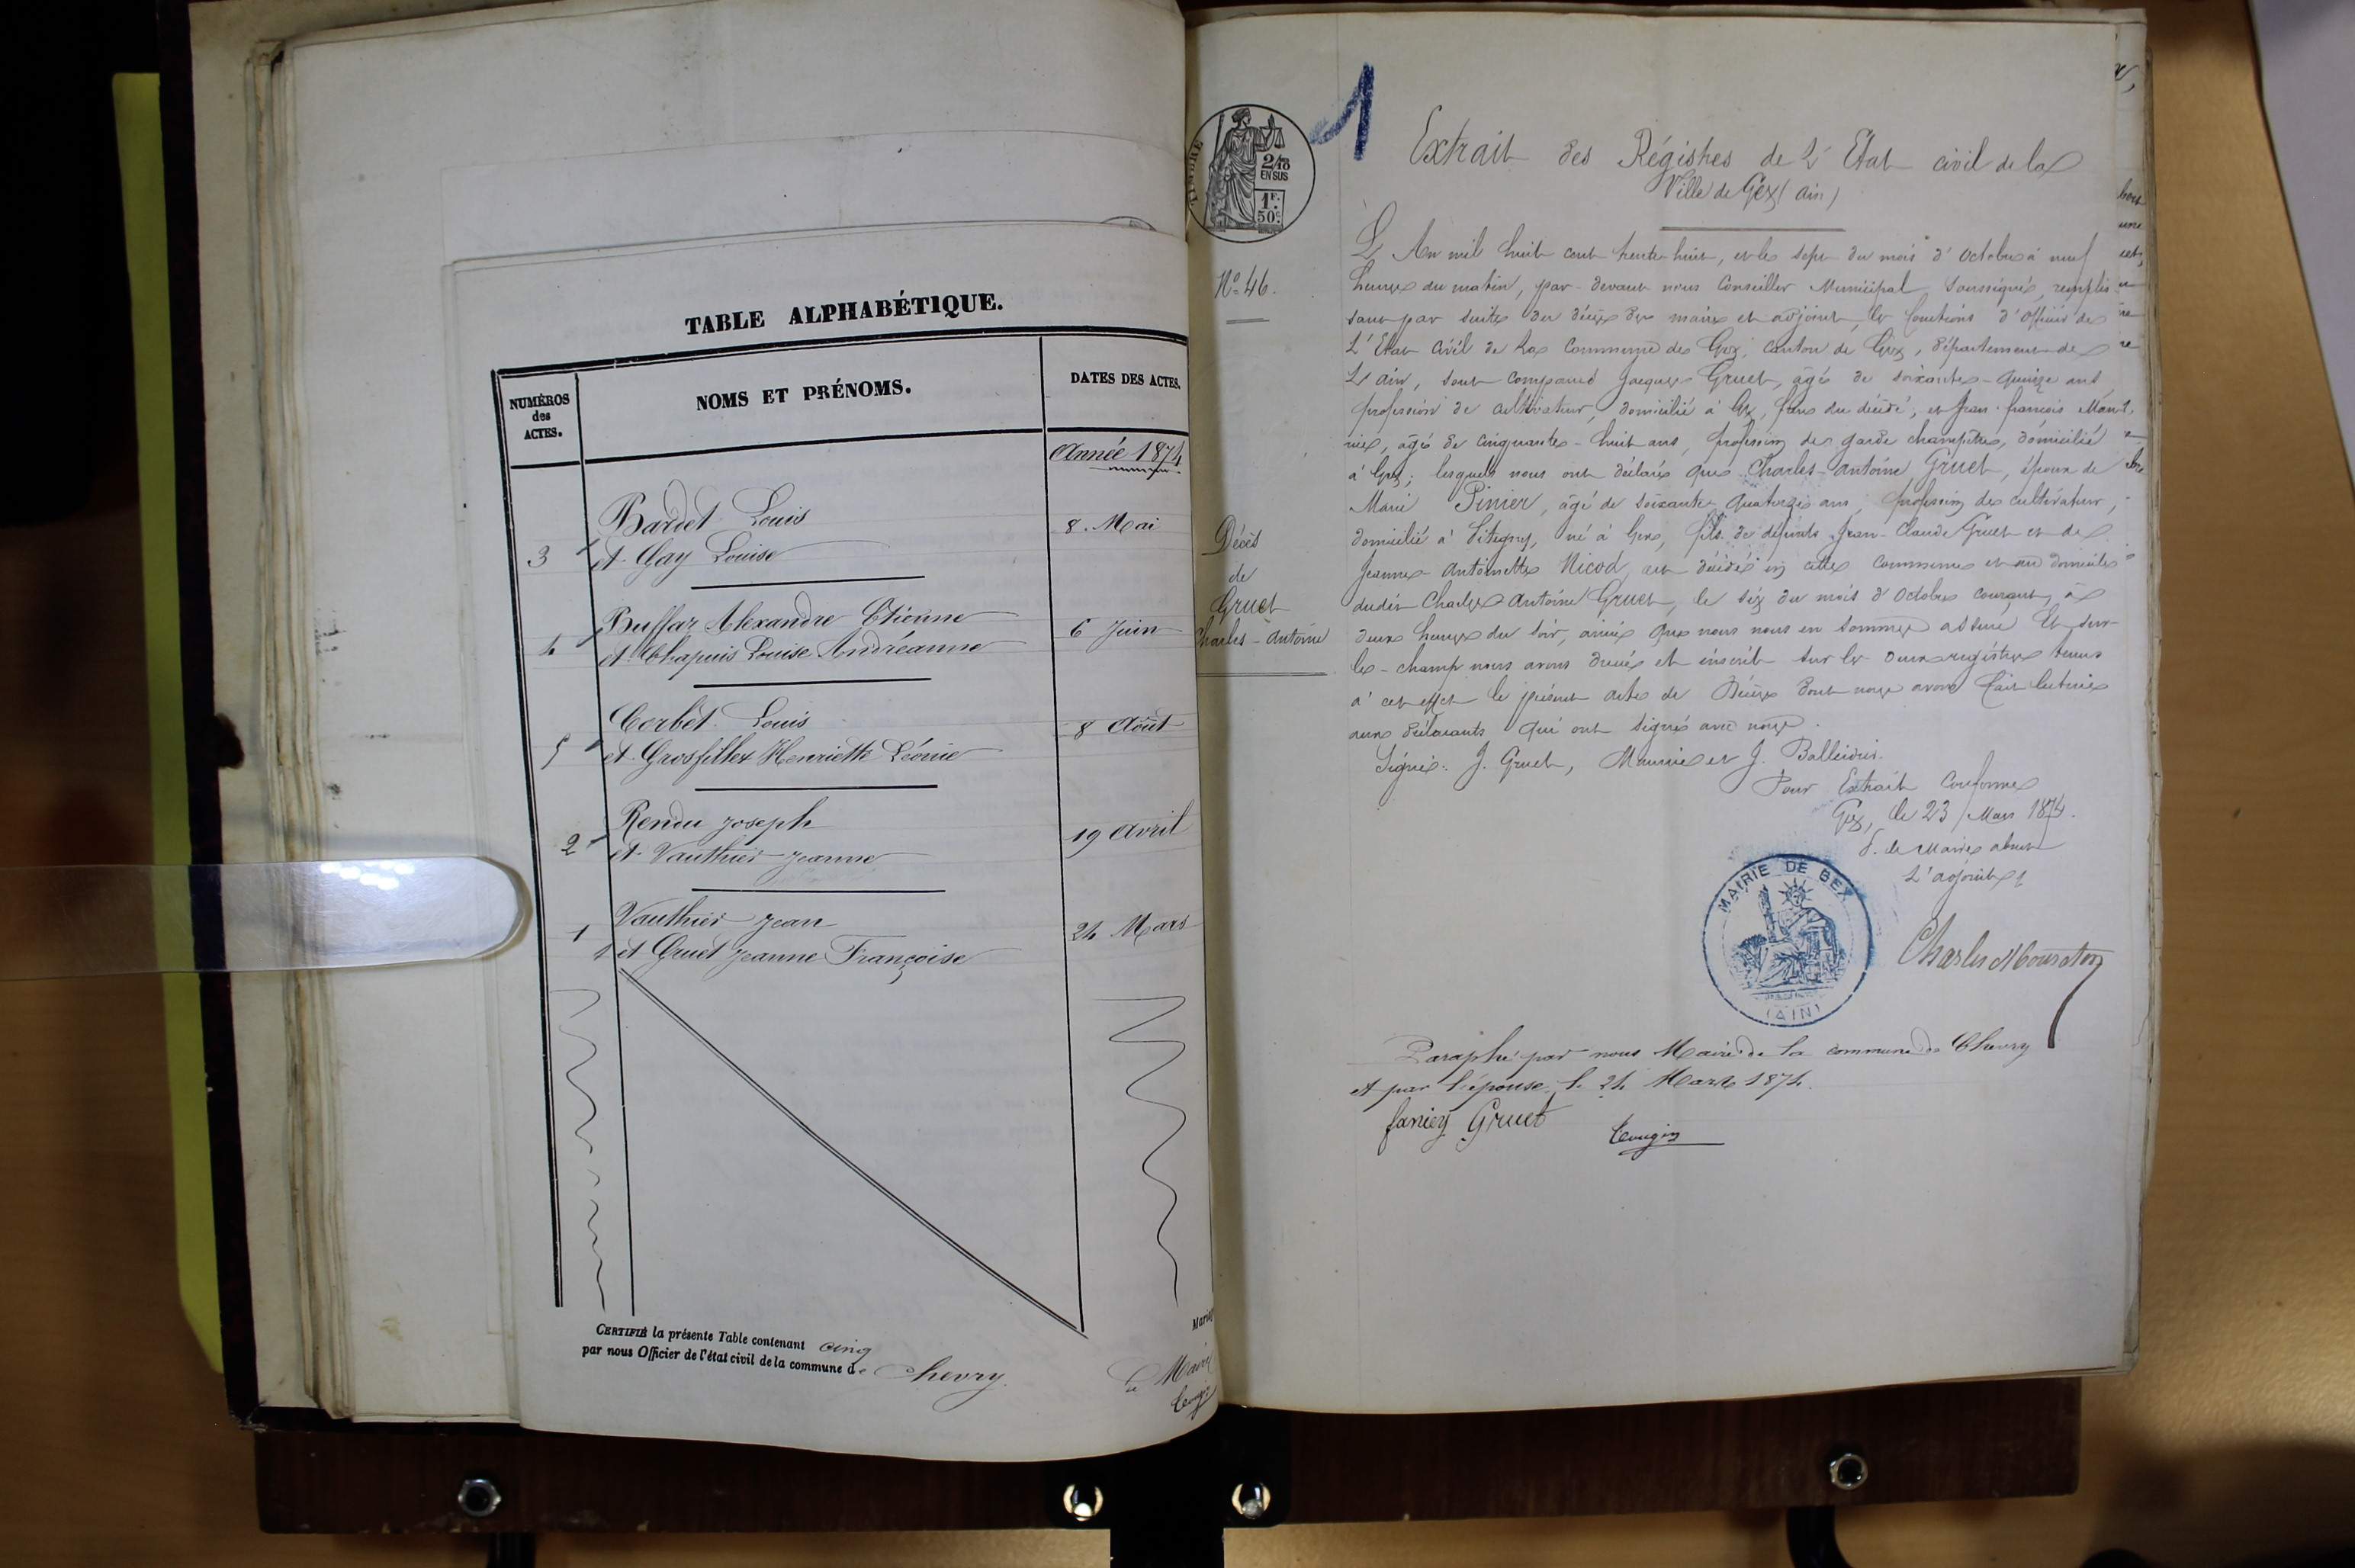 TABLE ALPHABÉTIQUE.
NUMÉROS
des
ACTES.
NOMS ET PRÉNOMS.
DATES DES ACTES.
Année 1874
Bardet Louis
3 et Gay Louise
8. Mai
Buffaz Alexandre Etienne
4 et Chapuis Louise Andréanne
6 Juin
Corbet Louis
5 et Grosfillex Henriette Léonie
8 Août
Rendu Joseph
2 et Vauthier Jeanne
19 Avril
Vauthier Jean
1 et Gruet Jeanne Françoise
24 Mars
CERTIFIÉ la présente Table contenant cinq
par nous Officier de l'état civil de la commune de Chevry.
Le Maire
TIMBRE
2/10
EN SUS
1F.
50c.
1
Extrait des Régistres de L'Etat civil de la
Ville de Gex (ain)
Nº 46.
L'An mil huit cent trente-huit, et le sept du mois d'Octobre à neuf
heures du matin, par-devant nous Conseiller Municipal soussigné, remplis-
sant par suite du décès des maire et adjoint, les fonctions d'Officier de
L'Etat Civil de la Commune de Gex, canton de Gex, département de
L'ain, sont comparus Jacques Gruet, âgé de soixante-quinze ans
profession de cultivateur, domicilié à Gex, frère du décédé, et Jean-françois
âgé de cinquante-huit ans, profession de garde champêtre, domicilié
à Gex; lesquels nous ont déclaré que Charles-antoine Gruet, époux de
Marie Pinier, âgé de soixante quatorze ans, profession de cultivateur,
domicilié à né à Gex, fils de défunts Jean-Claude Gruet et de
Jeanne-Antoinette Nicod, est décédé en cette commune et au domicile
dudit Charles-Antoine Gruet, le six du mois d'Octobre courant, à
deux heures du soir, ainsi que nous nous en sommes assuré Et sur-
le-champ nous avons dressé et inscrit sur les deux registres tenus
à cet effet le présent acte de Décès dont nous avons fait lecture
aux déclarants qui ont signé avec nous.
Signé: J. Gruet, et J.
Décès
de
Gruet
Charles-Antoine
Pour Extrait Conforme
Gex, le 23 Mars 1874.
P. le Maire absent
L'adjoint
MAIRIE DE GEX
(AIN)
Paraphé par nous Maire de la commune de Chevry
et par l'épouse, le 24 Mars 1874.
Gruet